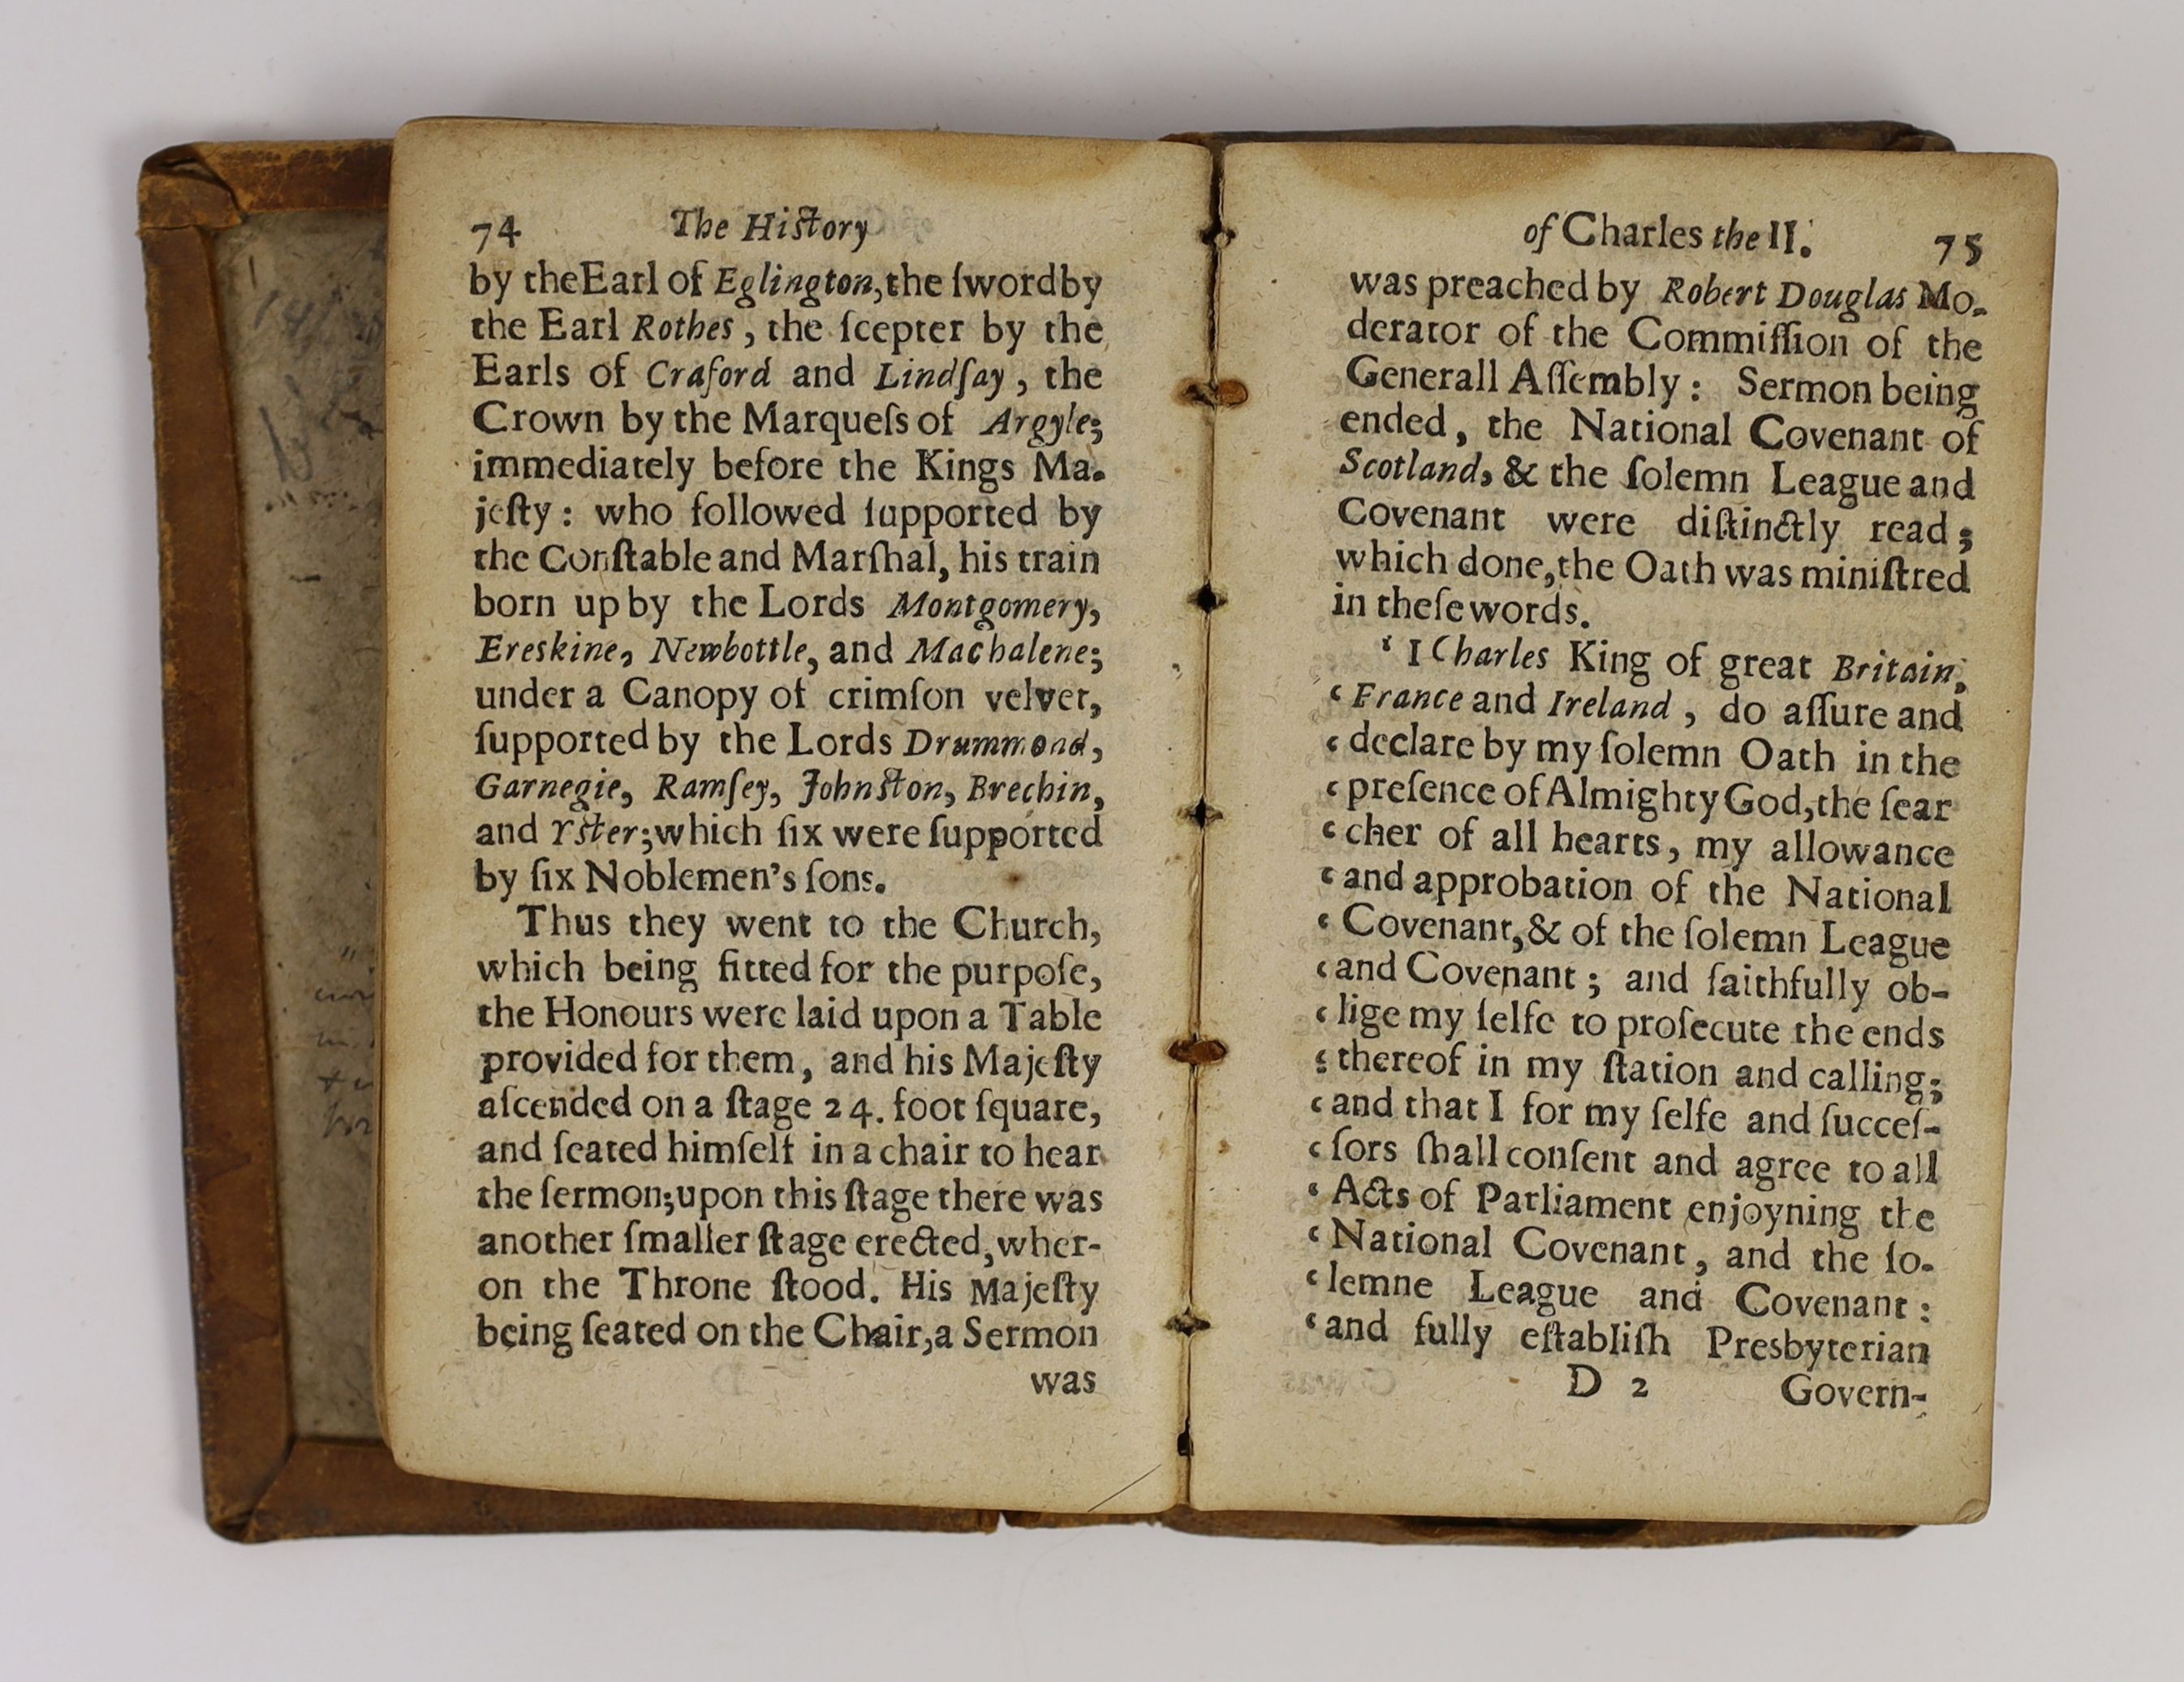 74 The Hiſtory
by the Earl of Eglington, the ſword by
the Earl Rothes, the ſcepter by the
Earls of Craford and Lindſay, the
Crown by the Marqueſs of Argyle;
immediately before the Kings Ma-
jeſty: who followed ſupported by
the Conſtable and Marſhal, his train
born up by the Lords Montgomery,
Ereskine, Newbottle, and Machalene;
under a Canopy of crimſon velvet,
ſupported by the Lords Drummond,
Garnegie, Ramſey, Johnſton, Brechin,
and Yſter; which ſix were ſupported
by ſix Noblemen's ſons.
Thus they went to the Church,
which being fitted for the purpoſe,
the Honours were laid upon a Table
provided for them, and his Majeſty
aſcended on a ſtage 24. foot ſquare,
and ſeated himſelf in a chair to hear
the ſermon; upon this ſtage there was
another ſmaller ſtage erected, wher-
on the Throne ſtood. His Majeſty
being ſeated on the Chair, a Sermon
was
of Charles the II. 75
was preached by Robert Douglas Mo-
derator of the Commiſſion of the
Generall Aſſembly: Sermon being
ended, the National Covenant of
Scotland, & the ſolemn League and
Covenant were diſtinctly read;
which done, the Oath was miniſtred
in theſe words.
‘ I Charles King of great Britain,
‘ France and Ireland, do aſſure and
‘ declare by my ſolemn Oath in the
‘ preſence of Almighty God, the ſear
‘ cher of all hearts, my allowance
‘ and approbation of the National
‘ Covenant, & of the ſolemn League
‘ and Covenant; and faithfully ob-
‘ lige my ſelfe to proſecute the ends
‘ thereof in my ſtation and calling;
‘ and that I for my ſelfe and ſucceſ-
‘ ſors ſhall conſent and agree to all
‘ Acts of Parliament enjoyning the
‘ National Covenant, and the ſo-
‘ lemne League and Covenant:
‘ and fully eſtabliſh Presbyterian
D 2 Govern-